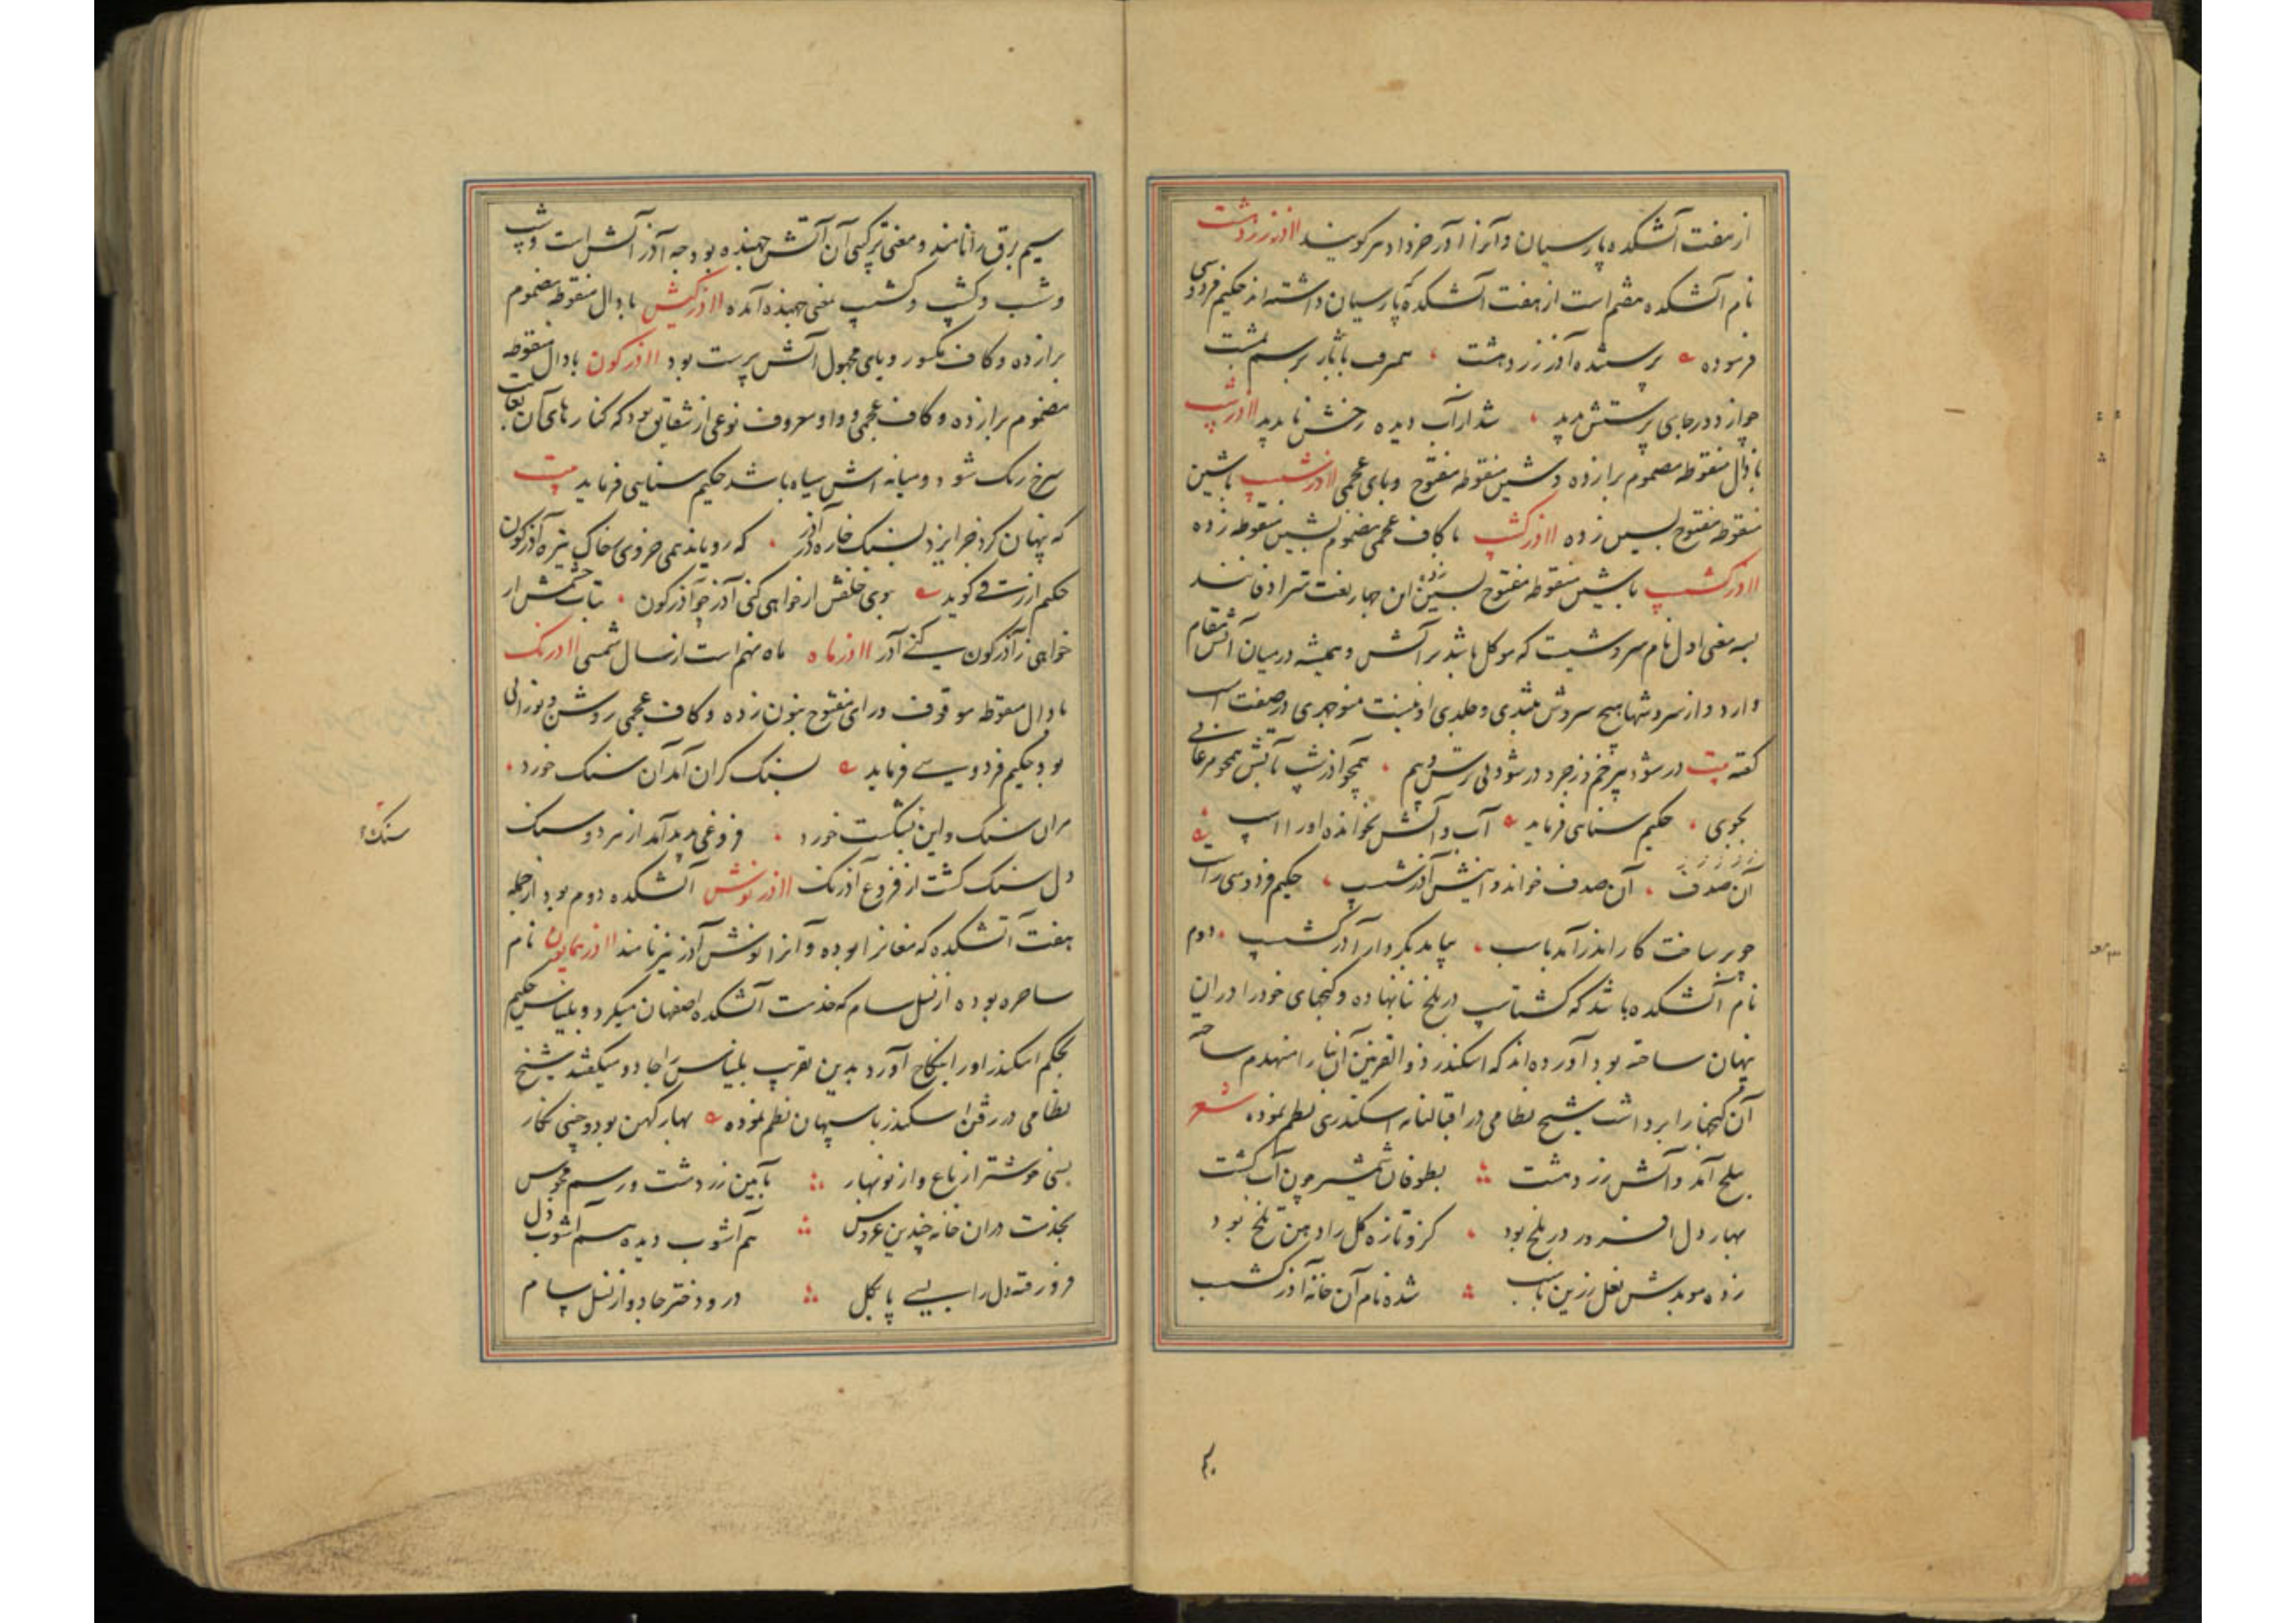 از هفت آتشکده پارسیان و آنرا آذر خرداد مرکویند اا ذرزردشت
نام آتشکده هشتم است از هفت آتشکدهٔ پارسیان داشته‌اند حکیم فردوسی
فرموده پرستنده آذر زردهشت همیرفت با بَرسم بمشت
چو از دور جای پرستش بدید شد از آب دیده رخش ناپدید اا ذرشپ
با ذال منقوطه مضموم برا زده و شین منقوطه مفتوح و بای عجمی اا ذرشسپ باشین
منقوطه مفتوح بسین زده اا ذرکشپ با کاف عجمی مضموم بشین منقوطه زده
اا ذرکشسپ باشین منقوطه مفتوح بسین زده این چهار لغت مترادفانند
بسه معنی اول نام سروشیست که موکل باشد بر آتش و همیشه در میان آتش مقام
دارد و از سروشها هیچ سروش بتندی و جلدی او نیست منوچهری در صفت اسپ
کفته بیت در شود بی زخم و زجر و در شود بی ترس و بیم همچو آذرشپ بآتش همچو مرغابی
بجوی حکیم سنایی فرماید آب و آتش بخوانده اورا اسپ
آن صدف آن صدف خواند و اینش آذرشسپ حکیم فردوسی راست
چو بر ساخت کار اندر آمد باسب بیامد بکردار آذرکشسپ دوم
نام آتشکده باشد که کشتاسپ در بلخ بنا نهاده و کنجهای خود را در ان
پنهان ساخته بود آورده‌اند که اسکندر ذوالقرنین آن بنا را منهدم ساخته
آن کنجها را برداشت شیخ نظامی در اقبالنامه اسکندری نظم نموده شعر
ببلخ آمد و آتش زردهشت بطوفان شمشیر چون آب کشت
بهار دل افروز در بلخ بود کزو تازه کل را دهن تلخ بود
زده موبدش نعل زرین باسب شده نام آن خانه آذرکشسب
سیم برق را نامند و معنی ترکیبی آن آتش جهنده بود چه آذر آتش است و شپ
و شسب و کشپ و کشسپ بمعنی جهنده آمده اا ذرکیش با ذال منقوطه مضموم
برا زده و کاف مکسور و یای مجهول آتش پرست بود اا ذرکون با ذال منقوطه
مضموم برا زده و کاف عجمی و واو معروف نوعی از شقایق بود که کنارهای آن بغایت
سرخ رنک شود و میانه اش سیاه باشد حکیم سنایی فرماید بیت
که پنهان کرد جز ایزد بسنک خاره در آذر که رویاند همی جز وی ز خاک تیره آذرکون
حکیم ازرقی کوید بوی خلقش ار خواهی کنی آذر چو آذرکون بتاب خشمش ار
خواهی ز آذرکون کنی آذر اا ذرماه ماه نهم است از سال شمسی اا ذرنک
با ذال منقوطه موقوف و رای مفتوح بنون زده و کاف عجمی روشن و نورانی
بود حکیم فردوسی فرماید بسنک کران آمد آن سنک خورد
هران سنک و این بشکست خورد فروغی پدید آمد از هر دو سنک
دل سنک کشت از فروغ آذرنک اا ذرنوش آتشکده دوم بود از جمله
هفت آتشکده که مغانرا بوده و آنرا نوش آذر نیز نامند اا ذرهمایون نام
ساحره بوده از نسل سام که خدمت آتشکده اصفهان میکرد و بلیناس حکیم
بحکم اسکندر او را بنکاح آورد بدین تقریب بلیناس را جادو میکفتند شیخ
نظامی در رفتن اسکندر باسپهان نظم نموده بهار کهن بود و چینی نکار
بسی خوشتر از باغ و از نوبهار بآیین زردشت و رسم مجوس
بخدمت دران خانه چندین عروس هم آشوب دیده هم آشوب دل
فرو رفته دل را بسی پا بکل درو دختر جادو از نسل سام
سنک